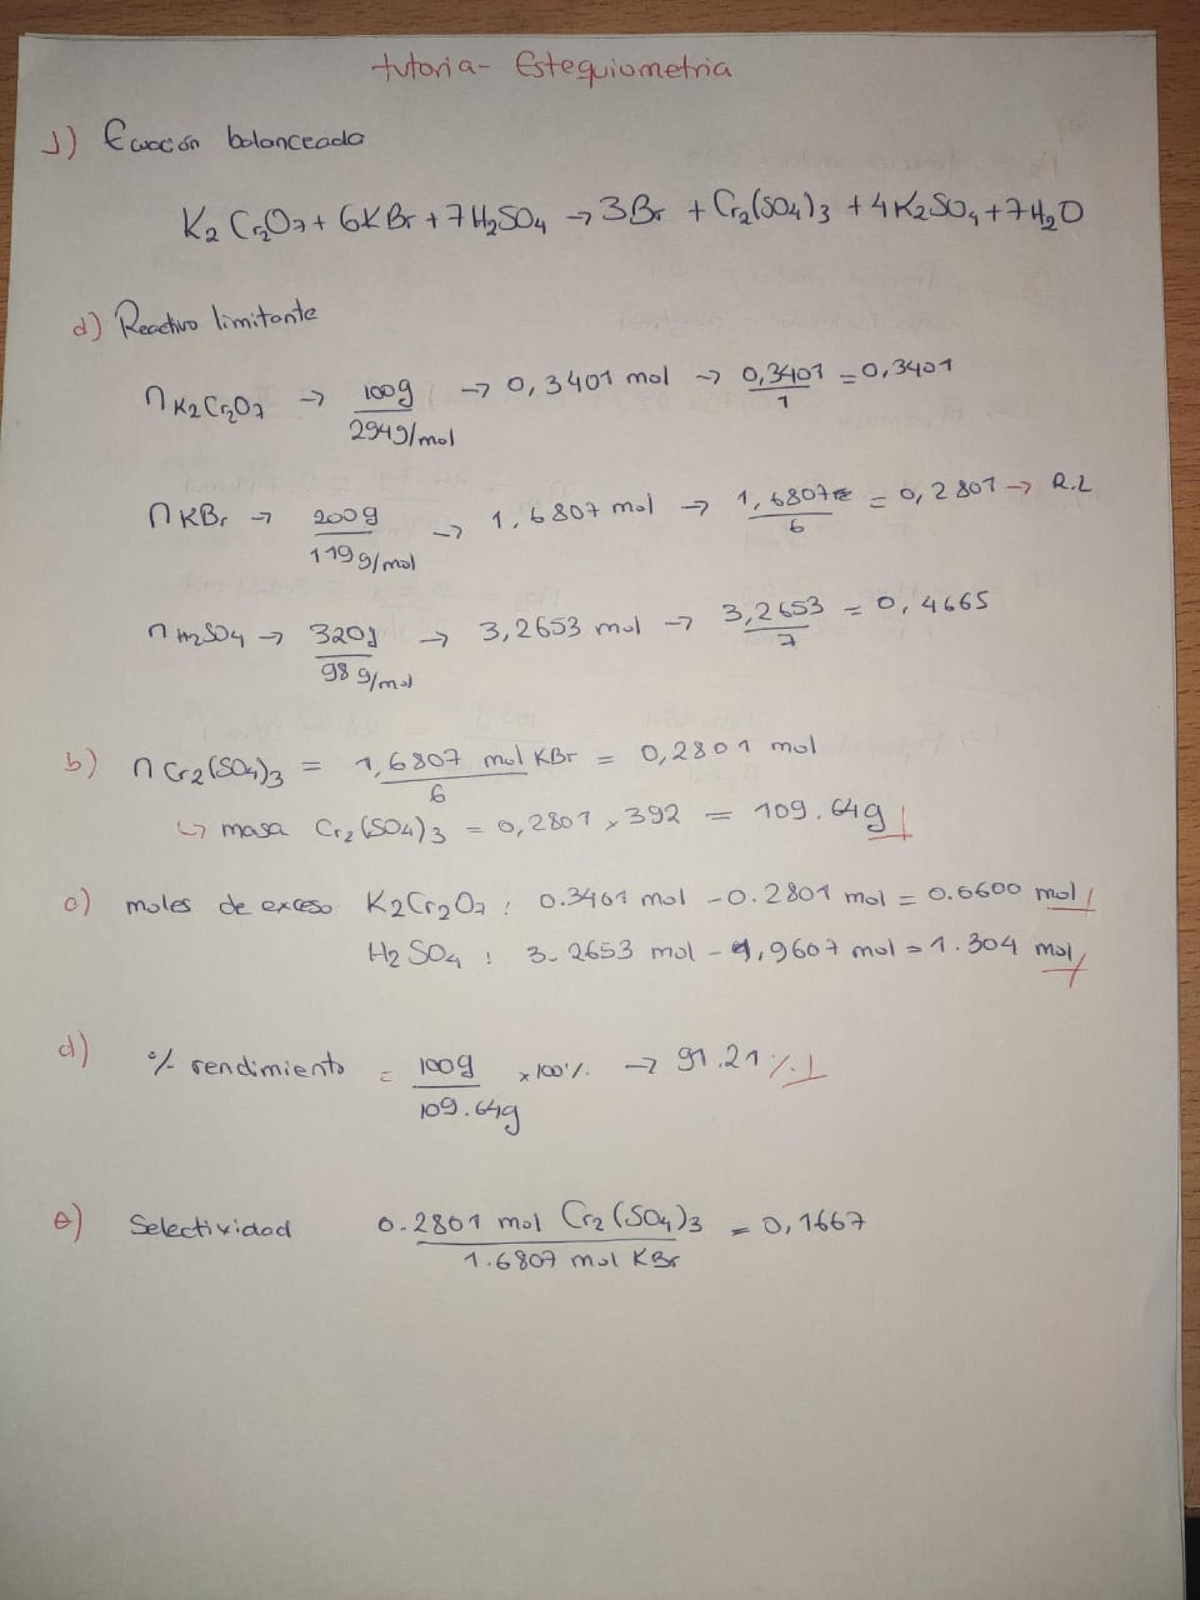 tutoria - Estequiometria
1) Ecuación balanceada
K2Cr2O7 + 6KBr + 7H2SO4 → 3Br + Cr2(SO4)3 + 4K2SO4 + 7H2O
a) Reactivo limitante
nK2Cr2O7 → 100g / 294g/mol → 0,3401 mol → 0,3401 / 1 = 0,3401
nKBr → 200g / 119g/mol → 1,6807 mol → 1,6807 / 6 = 0,2801 → R.L
nH2SO4 → 320g / 98g/mol → 3,2653 mol → 3,2653 / 7 = 0,4665
b) nCr2(SO4)3 = 1,6807 mol KBr / 6 = 0,2801 mol
↳ masa Cr2(SO4)3 = 0,2801 × 392 = 109.64g
c) moles de exceso K2Cr2O7 : 0.3401 mol - 0.2801 mol = 0.6600 mol
H2SO4 : 3.2653 mol - 1,9607 mol = 1.304 mol
d) % rendimiento = 100g / 109.64g × 100% → 91.21%
e) Selectividad 0.2801 mol Cr2(SO4)3 / 1.6807 mol KBr = 0,1667